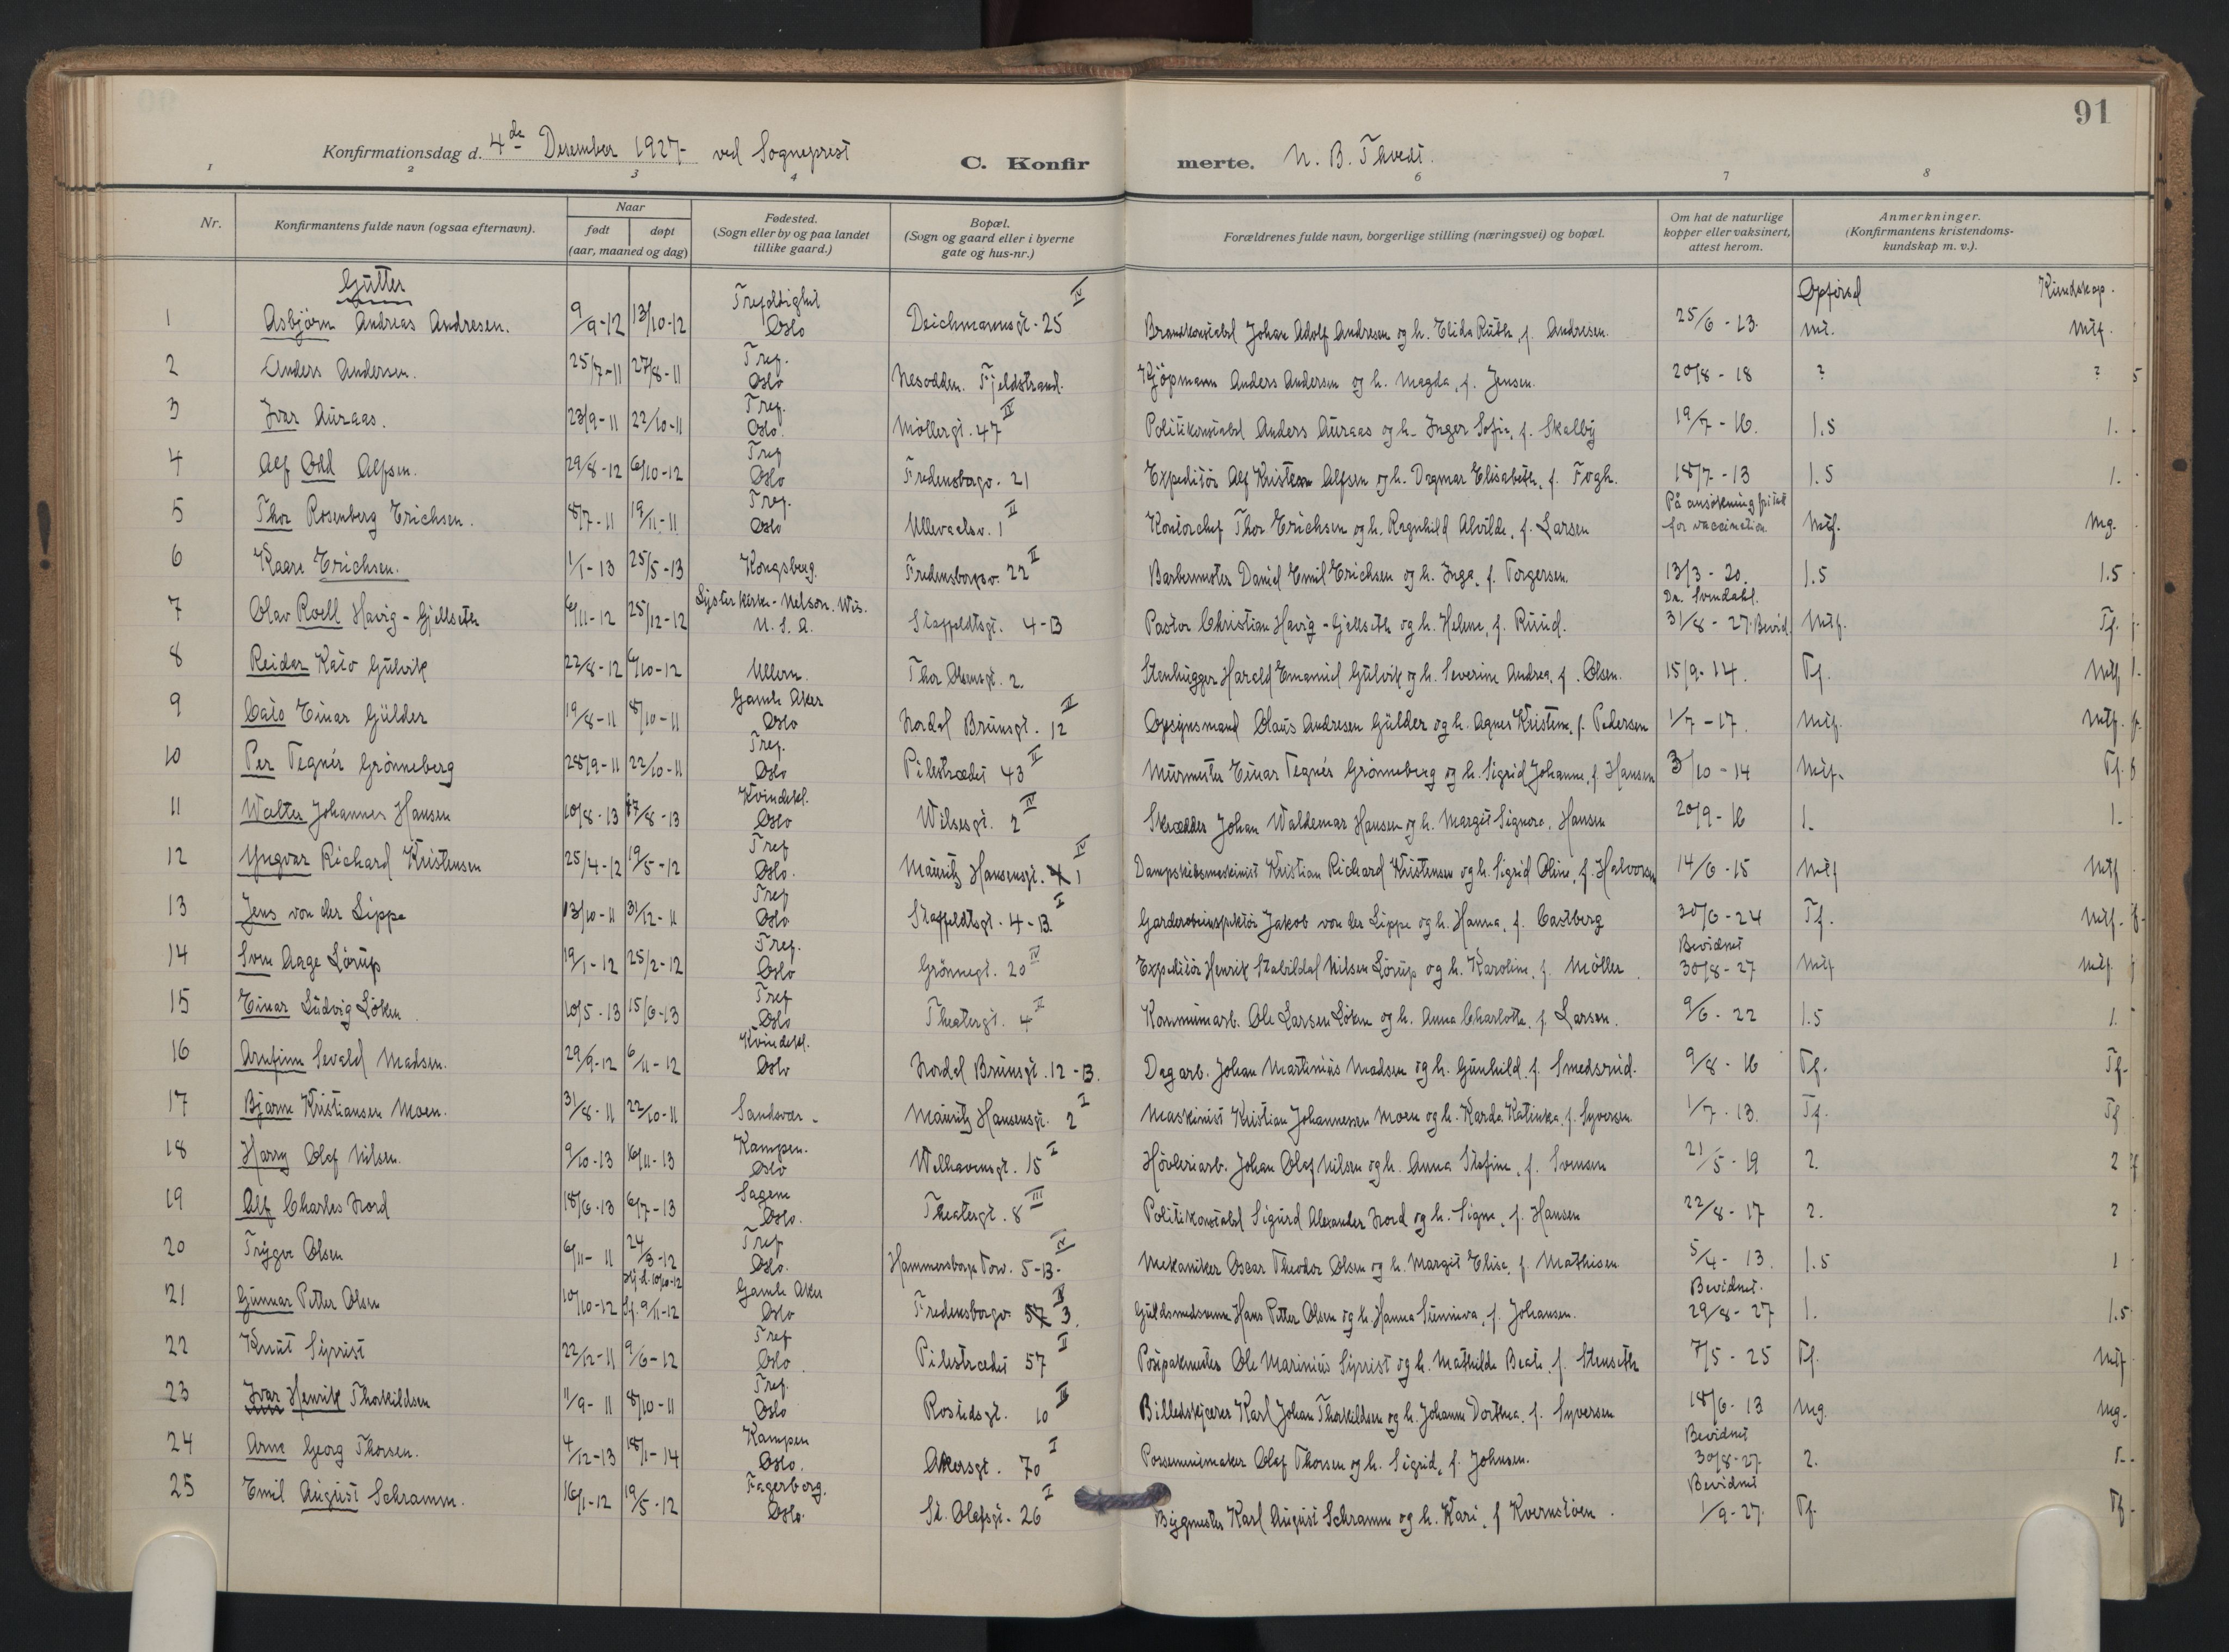 91
Konfirmationsdag d. 4de Desember 1927 ved Sogneprest C. Konfirmerte. N. B. Thvedt.
1 2 3 4 6 7 8
Nr. Konfirmantens fulde navn (ogsaa efternavn). Naar født døpt (aar, maaned og dag) Fødested. (Sogn eller by og paa landet tillike gaard.) Bopæl. (Sogn og gaard eller i byerne gate og hus-nr.) Forældrenes fulde navn, borgerlige stilling (næringsvei) og bopæl. Om hat de naturlige kopper eller vaksinert, attest herom. Anmerkninger. (Konfirmantens kristendomskundskap m. v.).
Gutter Opførsel Kundskap.
1 Asbjørn Andreas Andresen. 9/9-12 13/10-12 Trefoldighet Oslo Deichmannsgt. 25 IV Brandkonstabel Johan Adolf Andresen og h. Elida Ruth, f. Andresen. 25/6-23. mt. mtf.
2 Anders Andersen. 25/7-11 27/8-11 Tref. Oslo Nesodden. Fjeldstrand. Kjöpmann Anders Andersen og h. Magda, f. Jensen. 20/8-18 ? ? 5
3 Ivar Auraas. 23/9-11 22/10-11 Tref. Oslo. Möllergt. 47 IV Politikonstabel Anders Auraas og h. Inger Sofie, f. Skalby 19/7-16. 1.5 1.
4 Alf Odd Alfsen. 29/8-12 6/10-12 Tref Oslo Fredensborgv. 21 Expeditör Alf Kristian Alfsen og h. Dagmar Elisabeth, f. Fogh. 18/7-13 1.5 1.
5 Thor Rosenberg Erichsen. 8/7-11 19/11-11 Tref. Oslo Ullevaalsv. 1 II Kontorchef Thor Erichsen og h. Ragnhild Alvilde, f. Larsen På ansökning fritat for vaccination. Mtf. Mg.
6 Kaare Erichsen. 1/1-13 25/5-13 Kongsberg. Fredensborgsv. 22 II Barbermester Daniel Emil Erichsen og h. Inga, f. Torgersen. 13/3-20. 1.5 1.5
7 Olav Roell Havig-Gjelseth 6/11-12 25/12-12 Lyster kirke-Nelson. Wis. U.S.A. Staffeldtsgt. 4-B Pastor Christian Havig-Gjelseth og h. Helene, f. Ruud. Dr. Svendahl. 31/8-27. Bevid. Mtf. Tf.
8 Reidar Kato Gulvik 22/8-12 6/10-12 Ullern. Thor Olsensgt. 2. Stenhugger Harald Emanuel Gulvik og h. Severine Andrea, f. Olsen. 15/9-14. Tf. Mtf
9 Cato Einar Gülder 19/8-11 8/10-11 Gamle Aker Oslo Nordal Brunsgt. 12 II Opsynsmand Olaus Andresen Gülder og h. Agnes Kristine, f. Pedersen 1/7-17. Mtf. Mtf.
10 Per Tegnér Grønneberg 28/9-11 22/10-11 Tref. Oslo Pilestrædet 43 II Murmester Einar Tegnér Grønneberg og h. Sigrid Johanne, f. Hansen 3/10-14 Mtf. Tf.
11 Walter Johannes Hansen 10/8-13 17/8-13 Kvindekl. Oslo Wilsesgt. 2 IV Skrædder Johan Waldemar Hansen og h. Margit Signora, Hansen 20/9-16 1. 1.
12 Yngvar Richard Kristensen 25/4-12 19/5-12 Tref Oslo. Mauritz Hansensgt. 1 IV Dampskibsmaskinist Kristian Richard Kristensen og h. Sigrid Oline, f. Halvorsen 14/6-15 Mtf Mtf
13 Jens von der Lippe 13/10-11 31/12-11 Tref Oslo Staffeldtsgt. 4-B. I Garderobeinspektör Jakob von der Lippe og h. Hanna, f. Castberg 30/6-24 Tf. Mtf.
14 Sven Aage Lörup 19/1-12 25/2-12 Tref. Oslo Grönnegt. 20 IV Expeditör Henrik Stabildal Nilsen Lörup og h. Karoline, f. Möller Bevidnet 30/8-27 Mtf Mtf.
15 Einar Ludvig Löken 10/5-13 15/6-13 Tref Oslo Theatergt. 4 II Kommunearb. Ole Larsen Löken og h. Anna Charlotte, f. Larsen. 9/6-22 1.5 1.
16 Arnfinn Sevald Madsen. 29/9-12 6/11-12 Kvindekl. Oslo Nordal Brunsgt. 12-B. Dagarb. Johan Martinius Madsen og h. Gunhild, f. Smedsrud. 9/8-16 Tf. Tf.
17 Bjarne Kristiansen Moen. 31/8-11 22/10-11 Sandsvær. Mauritz Hansensgt. 2 I Maskinist Kristian Johannessen Moen og h. Karda Katinka, f. Syversen. 1/7-13. Tf. Tf
18 Harry Olaf Nilsen. 9/10-13 16/11-13 Kampen. Oslo Welhavensgt. 15 I Hövleriarb. Johan Olaf Nilsen og h. Anna Stefine, f. Svensen 21/5-19 2. 2
19 Alf Charles Nord 18/6-13 6/7-13 Sagene Oslo. Theatergt. 8 III Politikonstabel Sigurd Alexander Nord og h. Signe, f. Hansen 22/8-17 2. 2
20 Trygve Olsen 6/11-11 24/3-12 Tref Oslo. Hammersborgs Torv. 5-B. IV Mekaniker Oscar Theodor Olsen og h. Margit Elise, f. Mathisen 5/4-13. 1.5 1
21 Gunnar Petter Olsen 10/10-12 Hj.d. 10/10-12 St. 9/11-12 Gamle Aker Oslo Fredensborgv. 3. II Guldsmedsvenn Hans Petter Olsen og h. Hanna Sünniva, f. Johansen. Bevidnet. 29/8-27 1. 1.5
22 Knut Syvrist 22/12-11 9/6-12 Tref Oslo. Pilestrædet 57 II Postpakmester Ole Marinius Syvrist og h. Mathilde Beate, f. Stenseth 7/5-25 Tf. Mtf
23 Ivar Henrik Thorkildsen 11/9-11 8/10-11 Tref. Oslo Rostedsgt. 10 III Billedskjærer Karl Johan Thorkildsen og h. Johanne Dorthea, f. Syversen 18/6-13 Mg. Mg.
24 Arne Georg Thorsen. 4/12-13 18/1-14 Kampen Oslo. Akersgt. 70 I Possementmaker Olaf Thorsen og h. Sigrid, f. Johnsen. Bevidnet 30/8-27. 2.
25 Emil August Schramm. 16/1-12 19/5-12 Fagerborg. Oslo. St. Olafsgt. 26 I Bygmester Karl August Schramm og h. Kari, f Kvernstöen. Bevidnet 1/9-27. Tf. Tf.